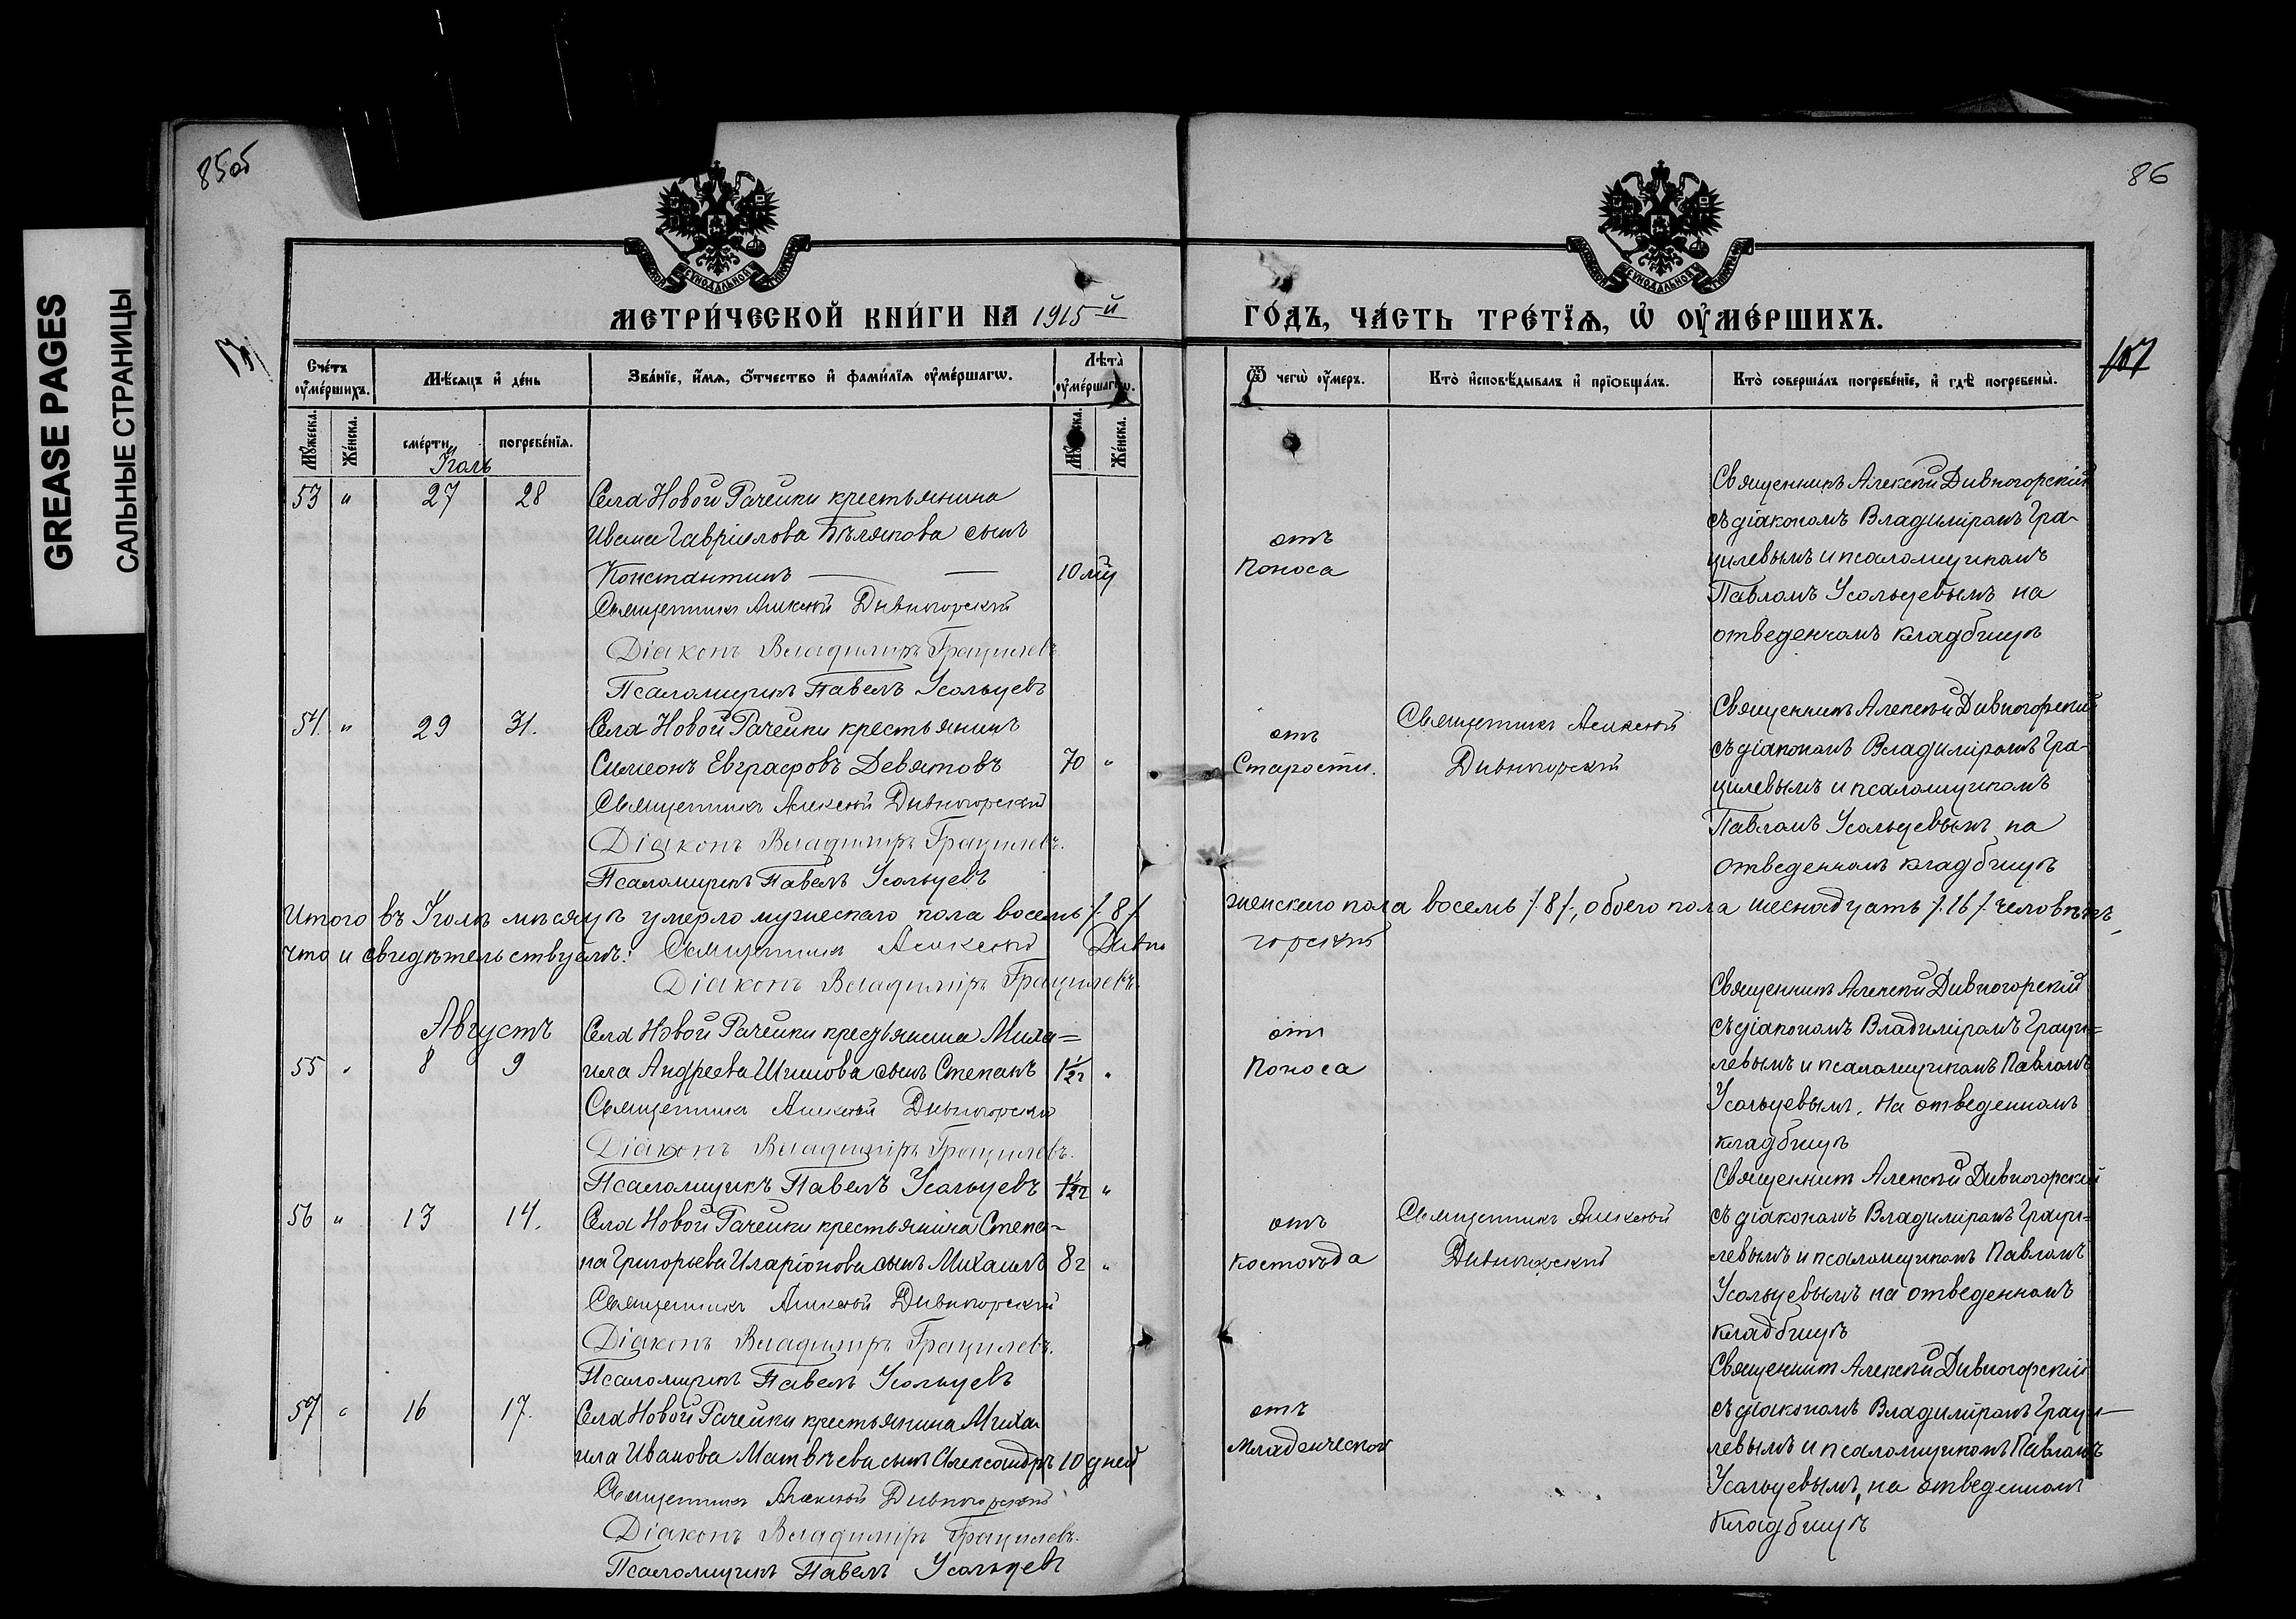 GREASE PAGES
САЛЬНЫЕ СТРАНИЦЫ
85об
86
МЕТРИ́ЧЕСКОЙ КНИ́ГИ НА 1915й
ГО́ДЪ, ЧА́СТЬ ТРЕ́ТЇѦ, Ѡ҆ ОУ҆МЕ́РШИХЪ.
107
Сче́тъ оу҆ме́ршихъ.
Мѣ́сяцъ и҆ де́нь
Зва́нїе, и҆́мя, ѻ҆́тчество и҆ фами́лїя оу҆ме́ршагѡ.
Лѣ́та оу҆ме́ршагѡ.
Ѿ чегѡ̀ оу҆́меръ.
Кто̀ и҆сповѣ́дывалъ и҆ прїѡбща́лъ.
Кто̀ соверша́лъ погребе́нїе, и҆ гдѣ̀ погребены̀.
Мꙋ́жеска.
Же́нска.
сме́рти
погребе́нїя.
Мꙋ́жеска.
Же́нска.
Іюль
53 " 27 28 Села Новой Рачейки крестьянина
Ивана Гавріилова Бѣлякова сынъ
Константинъ — — 10 лѣт
Священникъ Алексѣй Дивногорскій
Діаконъ Владиміръ Грацилевъ
Псаломщикъ Павелъ Усольцевъ
отъ
Поноса
Священникъ Алексѣй Дивногорскій
съ діакономъ Владиміромъ Гра-
цилевымъ и псаломщикомъ
Павломъ Усольцевымъ на
отведенномъ кладбищѣ
54. " 29 31. Села Новой Рачейки крестьянинъ
Симеонъ Евграфовъ Девятовъ 70 "
Священникъ Алексѣй Дивногорскій
Діаконъ Владиміръ Грацилевъ.
Псаломщикъ Павелъ Усольцевъ
отъ
Старости.
Священникъ Алексѣй
Дивногорскій
Священникъ Алексѣй Дивногорскій
съ діакономъ Владиміромъ Гра-
цилевымъ и псаломщикомъ
Павломъ Усольцевымъ на
отведенномъ кладбищѣ
Итого въ Іюлѣ мѣсяцѣ умерло мужескаго пола восемь /.8./ женскаго пола восемь /.8./, обоего пола шеснадцать /.16./ человѣкъ,
что и свидѣтельствуемъ: Священникъ Алексѣй Дивногорскій
Діаконъ Владиміръ Грацилевъ.
Августъ Села Новой Рачейки крестьянина Миха=
55 " 8 9 ила Андреева Шишова сынъ Степанъ 1½ г "
Священникъ Алексѣй Дивногорскій
Діаконъ Владиміръ Грацилевъ.
Псаломщикъ Павелъ Усольцевъ 1½ г "
отъ
Поноса
Священникъ Алексѣй Дивногорскій
съ діакономъ Владиміромъ Граци=
левымъ и псаломщикомъ Павломъ
Усольцевымъ. На отведенномъ
кладбищѣ
56 " 13 14. Села Новой Рачейки крестьянина Степа-
на Григорьева Иларіонова сынъ Михаилъ 8 г "
Священникъ Алексѣй Дивногорскій
Діаконъ Владиміръ Грацилевъ.
Псаломщикъ Павелъ Усольцевъ
отъ
Костоѣда
Священникъ Алексѣй
Дивногорскій
Священникъ Алексѣй Дивногорскій
съ діакономъ Владиміромъ Граци=
левымъ и псаломщикомъ Павломъ
Усольцевымъ на отведенномъ
кладбищѣ
57 " 16 17. Села Новой Рачейки крестьянина Миха-
ила Иванова Матвѣева сынъ Александръ 10 дней
Священникъ Алексѣй Дивногорскій
Діаконъ Владиміръ Грацилевъ.
Псаломщикъ Павелъ Усольцевъ
отъ
Младенческой
Священникъ Алексѣй Дивногорскій
съ діакономъ Владиміромъ Граци-
левымъ и псаломщикомъ Павломъ
Усольцевымъ, на отведенномъ
Кладбищѣ